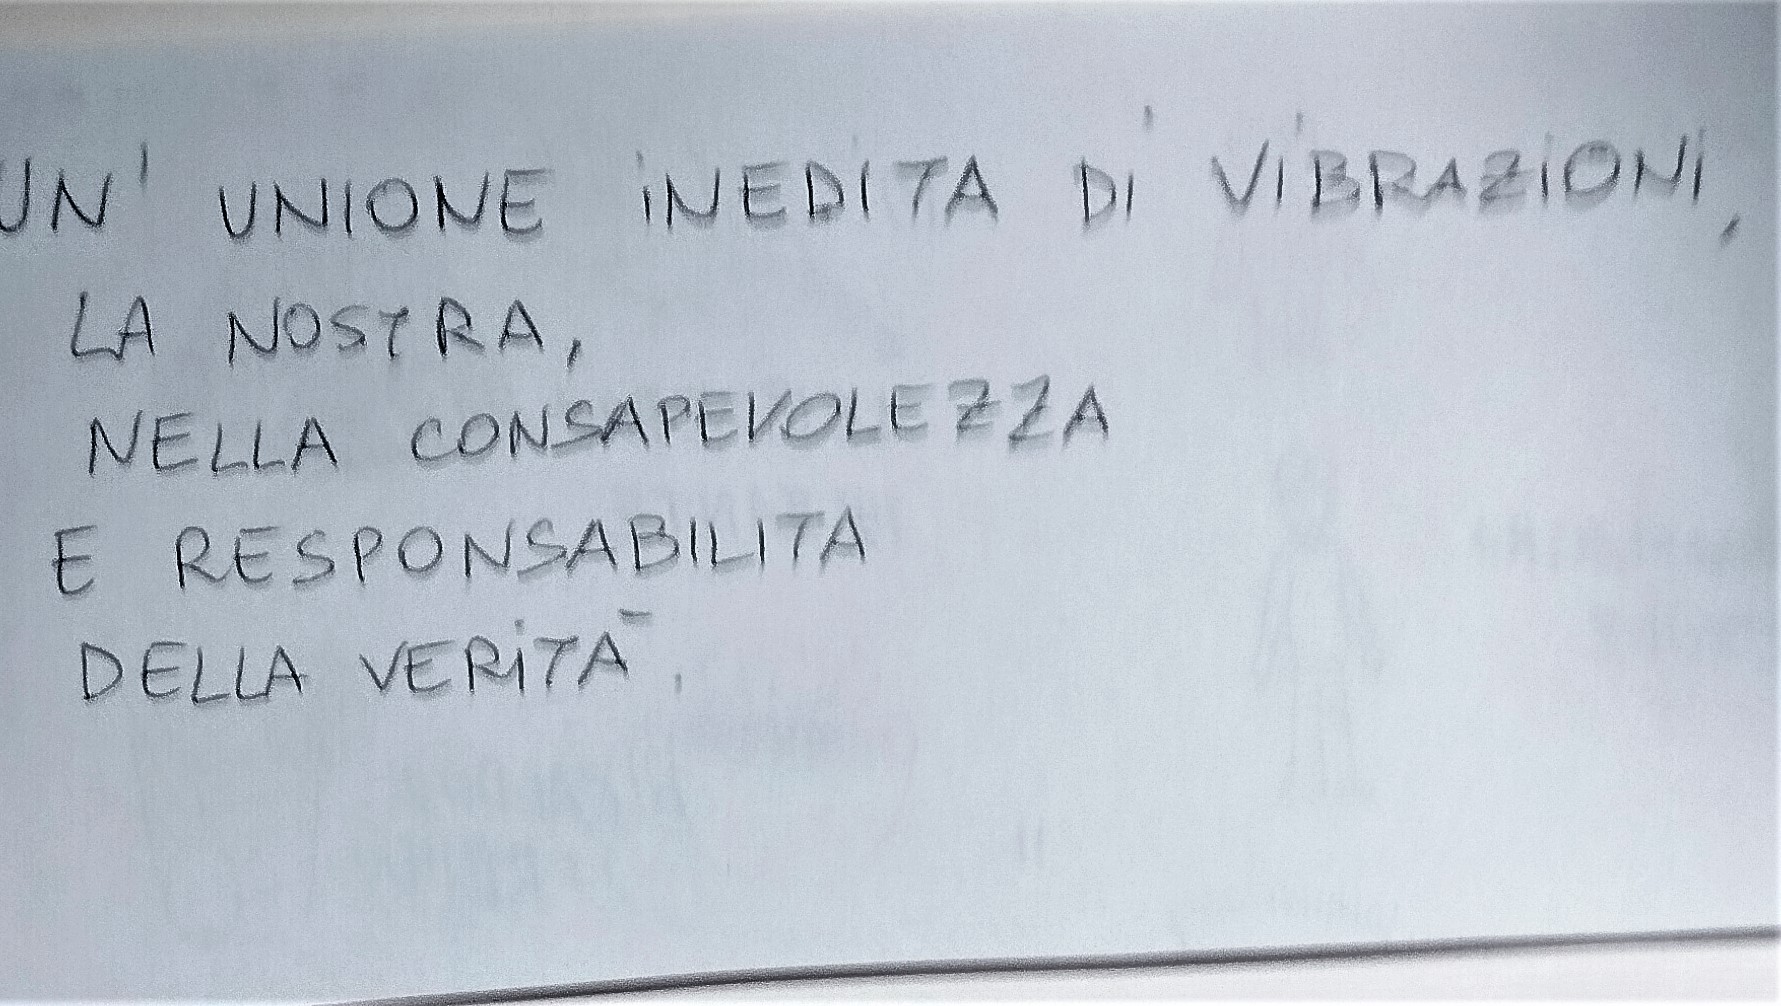 UN' UNIONE INEDITA DI VIBRAZIONI,
LA NOSTRA,
NELLA CONSAPEVOLEZZA
E RESPONSABILITA
DELLA VERITÀ.